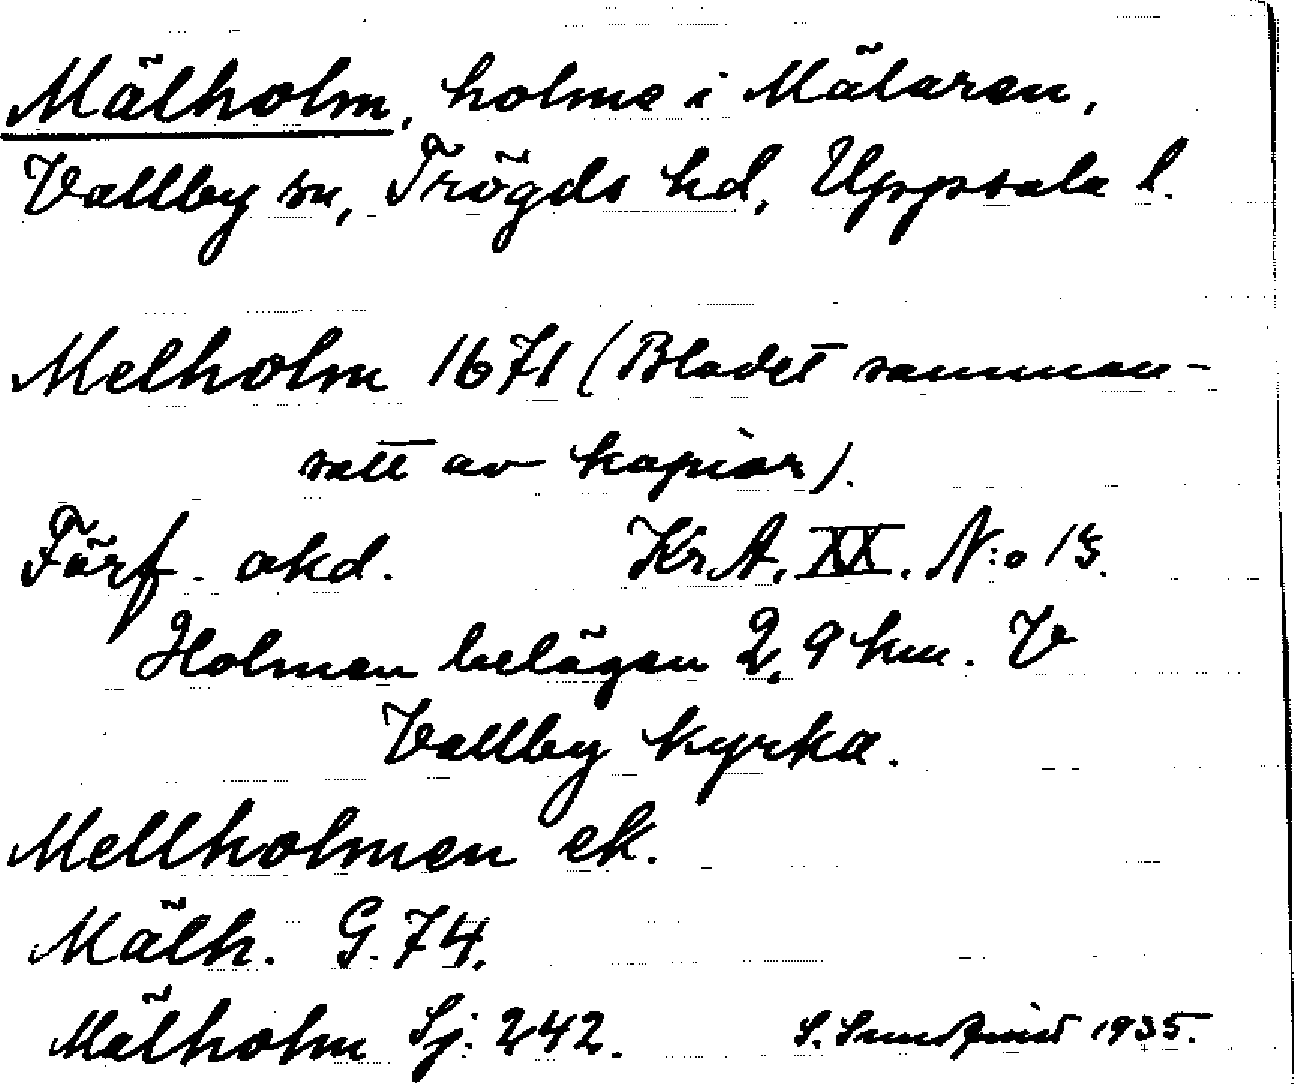 Mälholm, holme i Mälaren,
Vallby sn, Trögds hd, Uppsala l.
Melholm 1671 (Bladet samman-
satt av kopior).
Förf. okd. Kr. A. XX. N:o 13.
Holmen belägen 2,9 km. V
Vallby kyrka.
Mellholmen ek.
Mälh. G. 74.
Mälholm Sj. 242. S. 1935.